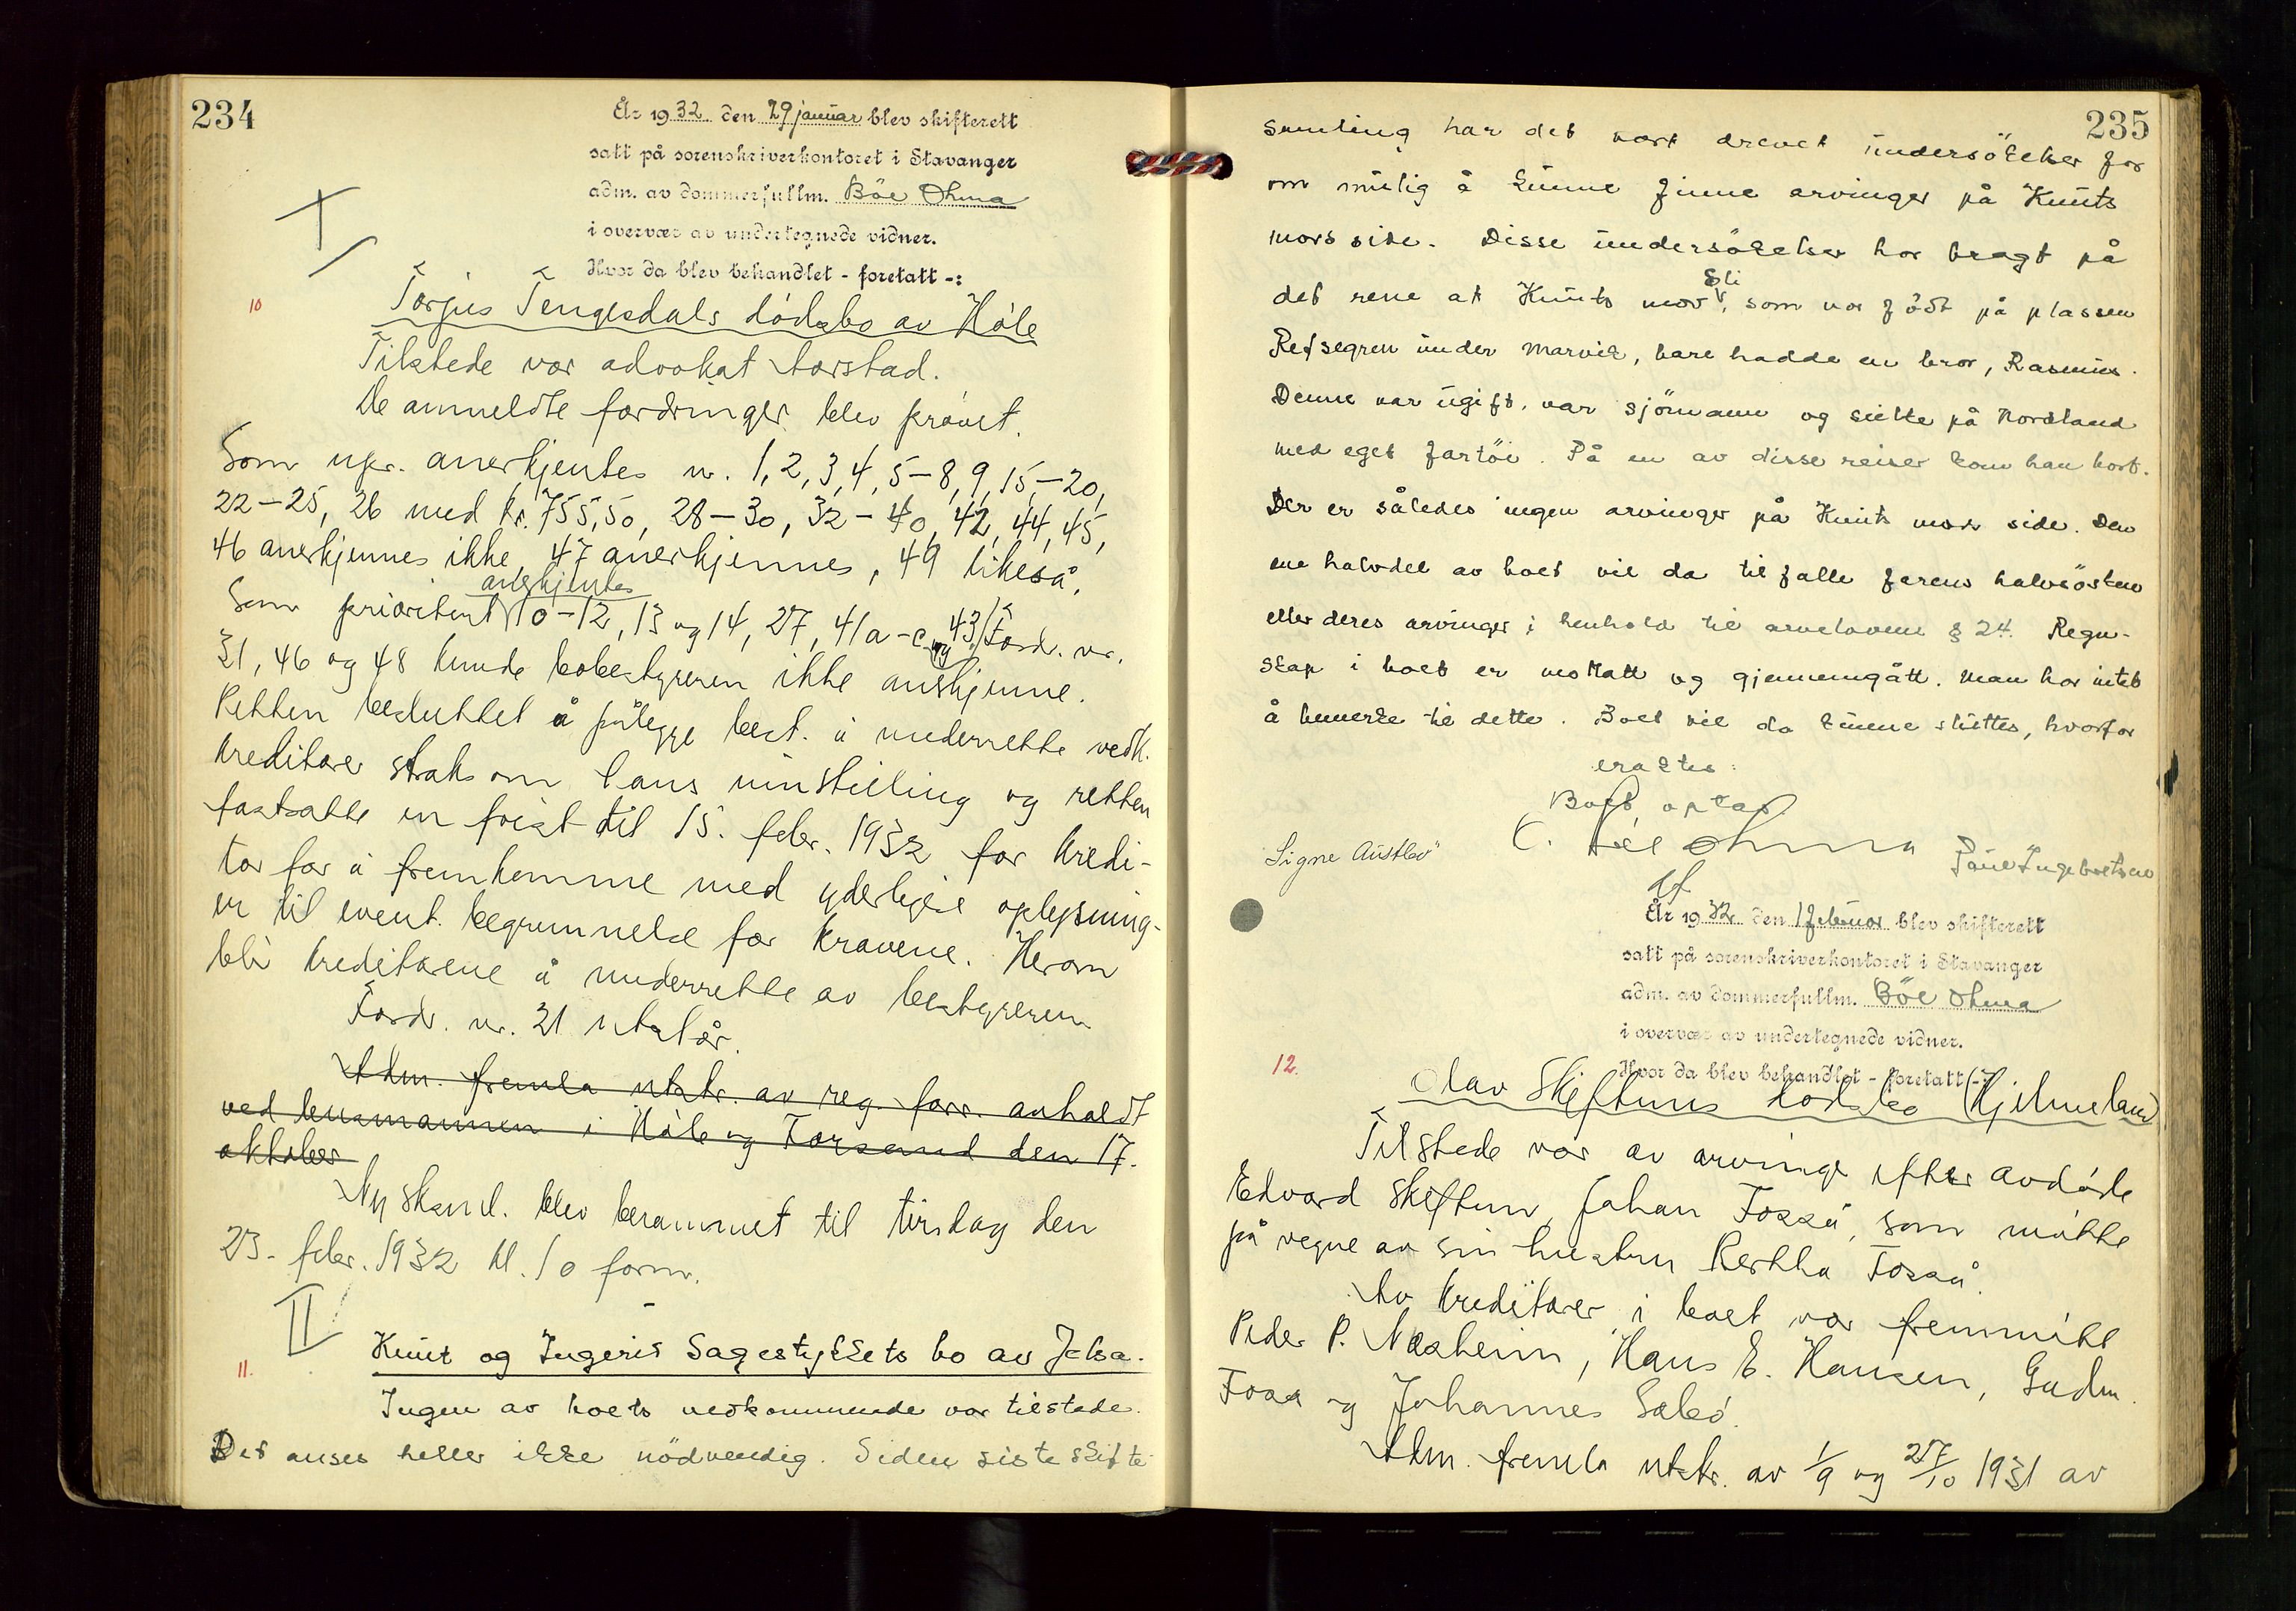 234
År 1932 den 29 januar blev skifterett
satt på sorenskriverkontoret i Stavanger
adm. av dommerfullm. Böe Ohma
i overvær av undertegnede vidner.
Hvor da blev behandlet - foretatt -:
I
10
Torjus Tengesdals dødsbo av Høle
Tilstede var advokat Aarstad.
De anmeldte fordringer blev prøvet.
Som upr. anerkjentes nr. 1, 2, 3, 4, 5-8, 9, 15-20,
22-25, 26 med kr. 755,50, 28-30, 32-40, 42, 44, 45,
46 anerkjennes ikke, 47 anerkjennes, 49 likeså.
anerkjentes
Som prioritert 10-12, 13 og 14, 27, 41a-c og 43. Fordr. nr.
21, 46 og 48 kunde bobestyreren ikke anerkjenne.
Retten besluttet å pålegge best. å underrette vedk.
kreditorer straks om hans innstilling og retten
fastsatte en frist til 15. febr. 1932 for kredi-
tor for å fremkomme med yderligere oplysning-
er til event. begrunnelse for kravene. Herom
blir kreditorene å underrette av bestyreren.
Fordr. nr. 31 utstår.
Adm. fremla utskr. av reg. forr. avholdt
ved lensmannen i Høle og Forsand den 17.
oktober
Ny sksml. blev berammet til tirsdag den
23. febr. 1932 kl. 10 form.
II
11.
Knut og Ingeris Sagestykkets bo av Jelsa.
Ingen av boets vedkommende var tilstede.
Det anses heller ikke nödvendig. Siden siste skifte
235
samling har det vært drevet undersökelser for
om mulig å kunne finne arvinger på Knuts
mors side. Disse undersökelser har bragt på
Eli
det rene at Knuts mor, som var född på plassen
Refsegren under Marvik, bare hadde en bror, Rasmus.
Denne var ugift, var sjömann og seilte på Nordland
med eget fartöi. På en av disse reiser kom han bort.
Der er således ingen arvinger på Knuts mors side. Den
ene halvdel av boet vil da tilfalle farens halvsösken
eller deres arvinger i henhold til arvelovens § 24. Regn-
skap i boet er mottatt og gjennemgått. Man har intet
å bemerke til dette. Boet vil da kunne sluttes, hvorfor
eraktes:
Boet optas
C. Böe Ohma
Signe Austbø
Paul Ingebretsen
År 1932 den 1 februar blev skifterett
satt på sorenskriverkontoret i Stavanger
adm. av dommerfullm. Böe Ohma
i overvær av undertegnede vidner.
Hvor da blev behandlet - foretatt -:
12.
Olav Skiftuns dødsbo (Hjelmeland)
Tilstede var av arvinger efter avdøde
Edvard Skiftun, Johan Fosså, som møtte
på vegne av sin hustru Bertha Fosså.
Av kreditorer i boet var fremmøtt
Peder P. Nesheim, Hans E. Hansen, Gudm.
Foss og Johannes Sabø.
Adm. fremla utskr. av 1/9 og 27/10 1931 av